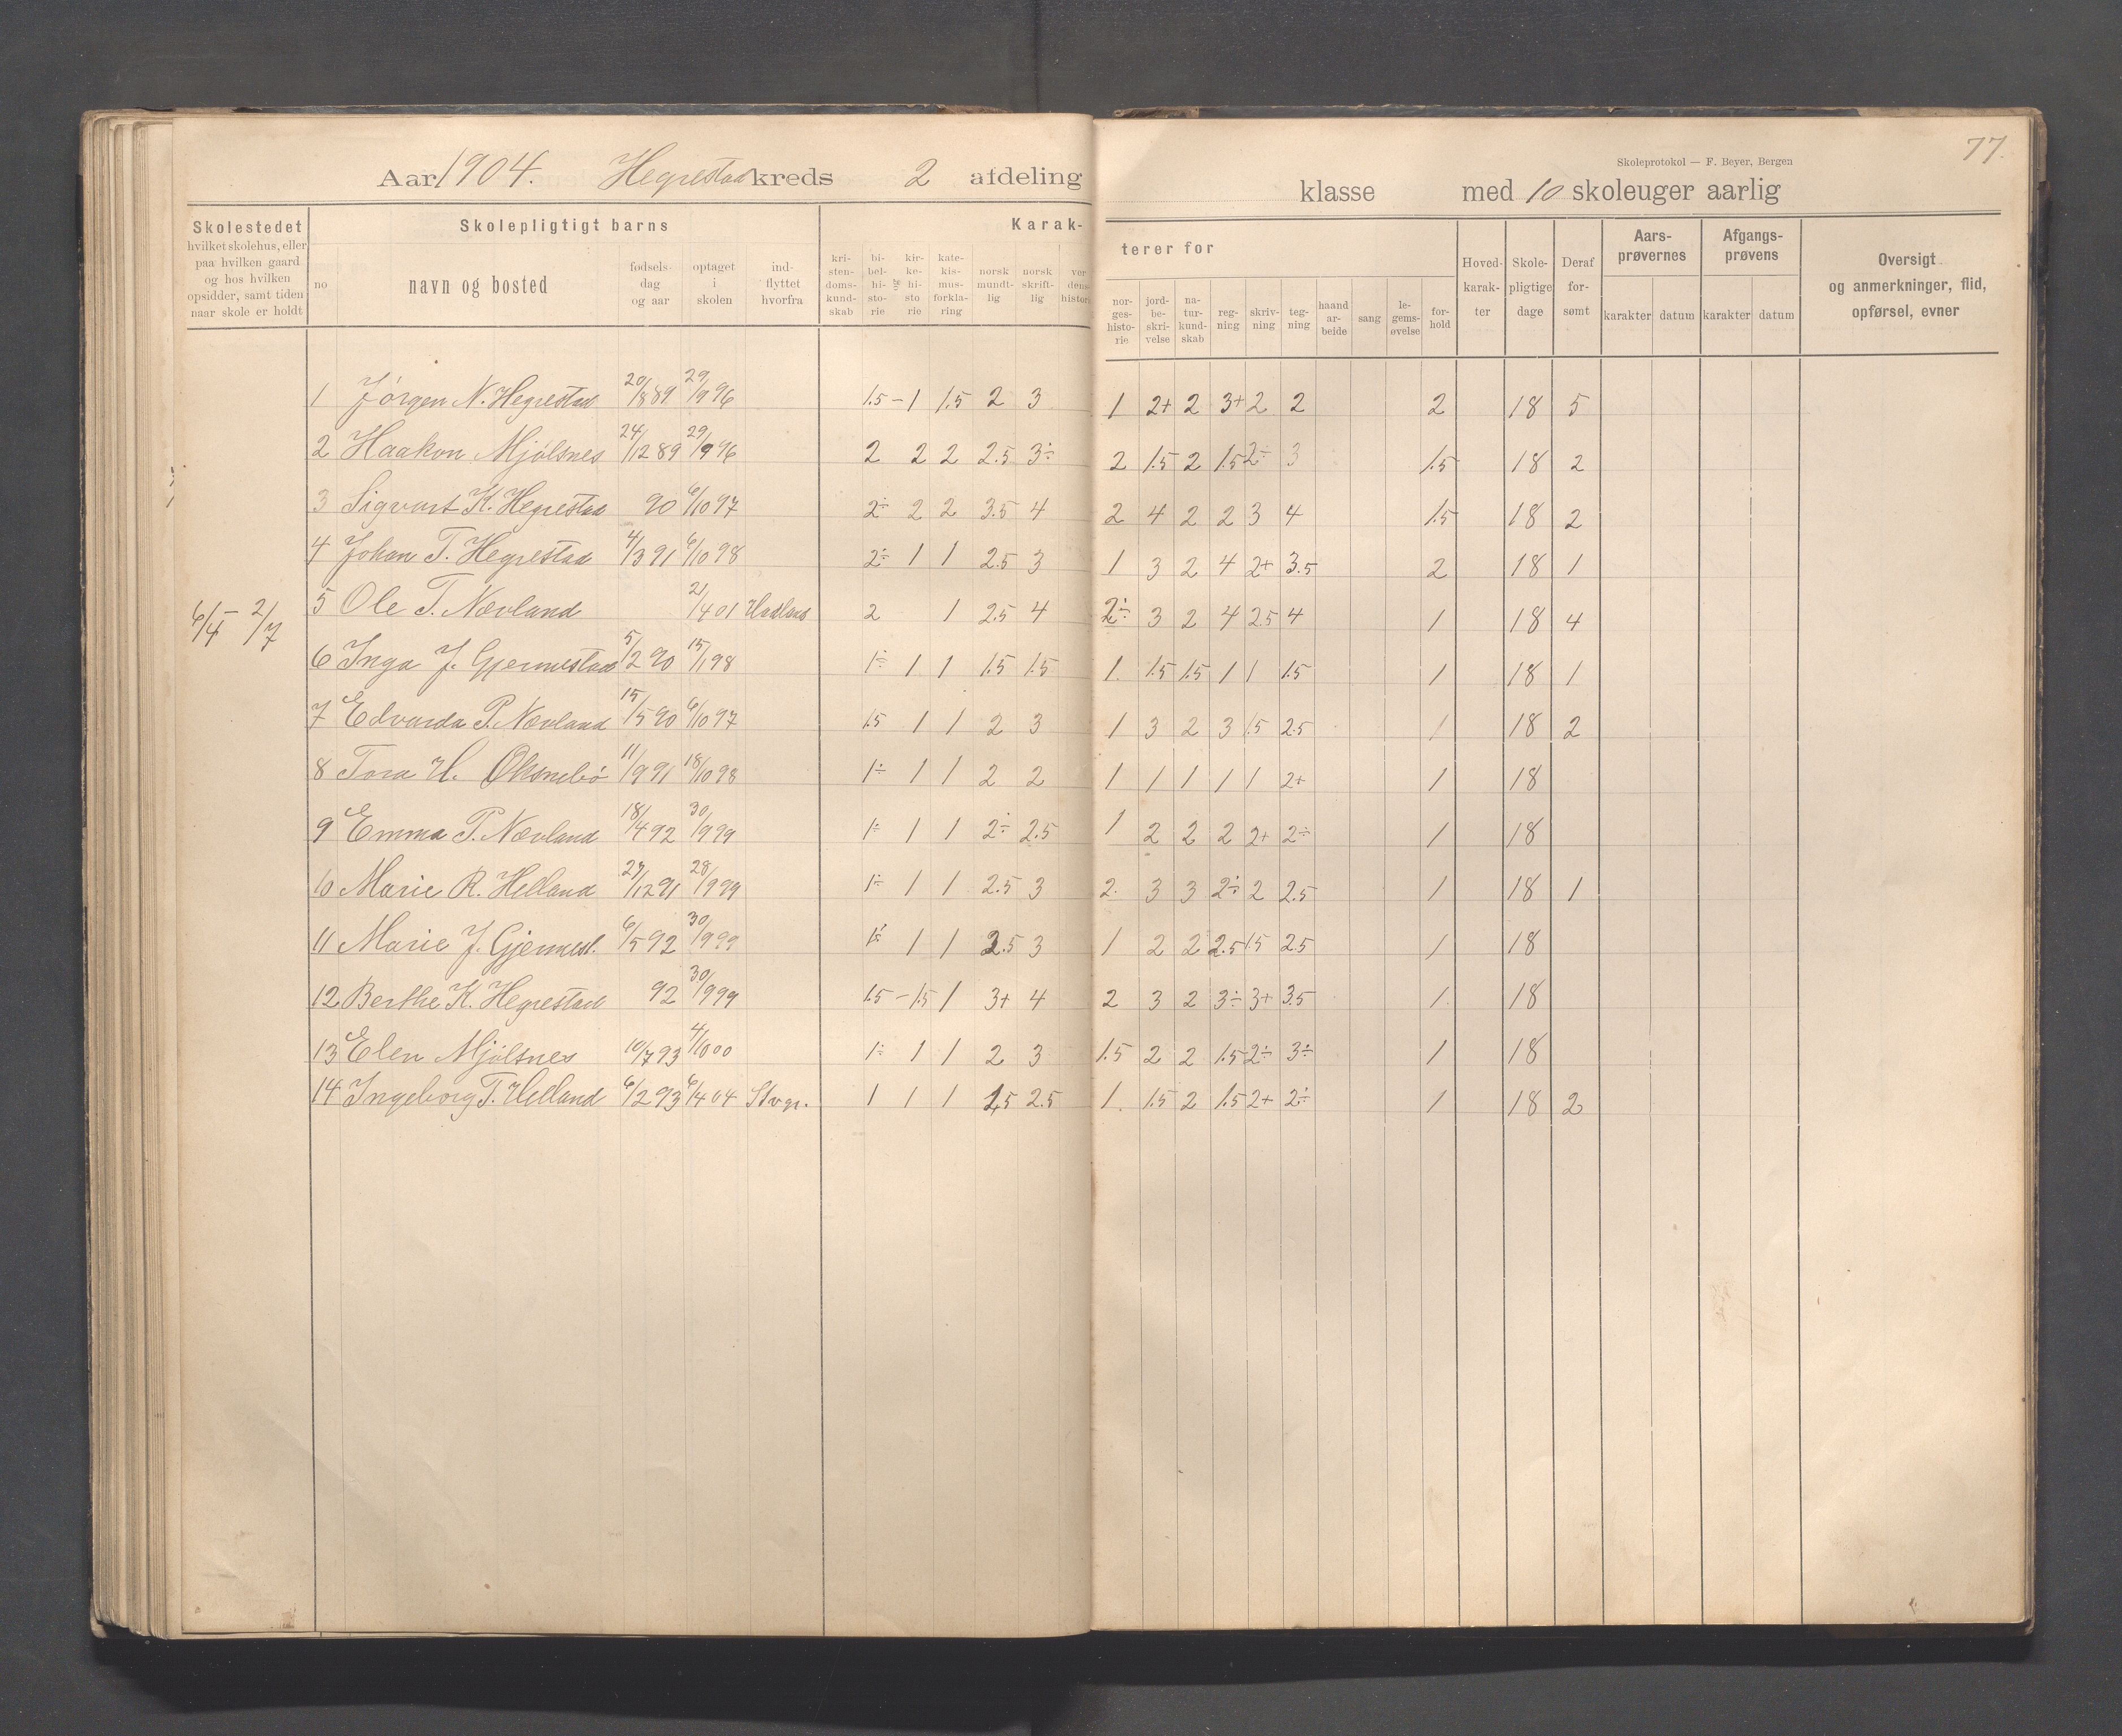 77.
Skoleprotokol — F. Beyer, Bergen
Aar 1904. Hegrestad kreds 2 afdeling klasse med 10 skoleuger aarlig
Skolestedet
hvilket skolehus, eller
paa hvilken gaard
og hos hvilken
opsidder, samt tiden
naar skole er holdt
Skolepligtigt barns
no
navn og bosted
fødsels-
dag
og aar
optaget
i
skolen
ind-
flyttet
hvorfra
Karak-
terer for
kri-
sten-
doms-
kund-
skab
bi-
bel-
hi-
sto-
rie
kir-
ke-
hi-
sto
rie
kate-
kis-
mus-
forkla-
ring
norsk
mundt-
lig
norsk
skrift-
lig
ver
dens
histori
nor-
ges-
histo-
rie
jord-
be-
skri-
velse
na-
tur-
kund-
skab
reg-
ning
skriv-
ning
teg-
ning
haand
ar-
beide
sang
le-
gems-
øvelse
for-
hold
Hoved-
karak-
ter
Skole-
pligtige
dage
Deraf
for-
sømt
Aars-
prøvernes
karakter datum
Afgangs-
prøvens
karakter datum
Oversigt
og anmerkninger, flid,
opførsel, evner
1 Jörgen N. Hegrestad 20/8 89 29/9 96 1.5 – 1 1.5 2 3 1 2+ 2 3+ 2 2 2 18 5
2 Haakon Mjölsnes 24/12 89 29/9 96 2 2 2 2.5 3÷ 2 1.5 2 1.5 2÷ 3 1.5 18 2
3 Sigvart K. Hegrestad 90 6/10 97 2÷ 2 2 3.5 4 2 4 2 2 3 4 1.5 18 2
4 Johan T. Hegrestad 4/3 91 6/10 98 2÷ 1 1 2.5 3 1 3 2 4 2+ 3.5 2 18 1
6/4 – 2/7
5 Ole T. Nævland 21/4 01 2 1 2.5 4 2÷ 3 2 4 2.5 4 1 18 4
6 Inga J. Gjermestad 5/2 90 15/1 98 1÷ 1 1 1.5 1.5 1. 1.5 1.5 1 1 1.5 1 18 1
7 Edvarda P. Nævland 15/5 90 6/10 97 1.5 1 1 2 3 1 3 2 3 1.5 2.5 1 18 2
8 Tora H. Oksnebö 11/9 91 18/10 98 1÷ 1 1 2 2 1 1 1 1 1 2+ 1 18
9 Emma P. Nævland 18/4 92 30/9 99 1÷ 1 1 2÷ 2.5 1 2 2 2 2+ 2÷ 1 18
10 Marie R. Helland 27/12 91 28/9 99 1÷ 1 1 2.5 3 2. 3 3 2÷ 2 2.5 1 18 1
11 Marie J. Gjermest. 6/5 92 30/9 99 1÷ 1 1 2.5 3 1 2 2 2.5 1.5 2.5 1 18
12 Berthe K. Hegrestad 92 30/9 99 1.5 – 1.5 1 3+ 4 2 3 2 3÷ 3+ 3.5 1. 18
13 Elen Mjölsnes 10/7 93 4/10 00 1÷ 1 1 2 3 1.5 2 2 1.5 2÷ 3÷ 1 18
14 Ingeborg T. Helland 6/2 93 6/4 04 Stvgr. 1 1 1 1.5 2.5 1. 1.5 2 1.5 2+ 2÷ 1 18 2